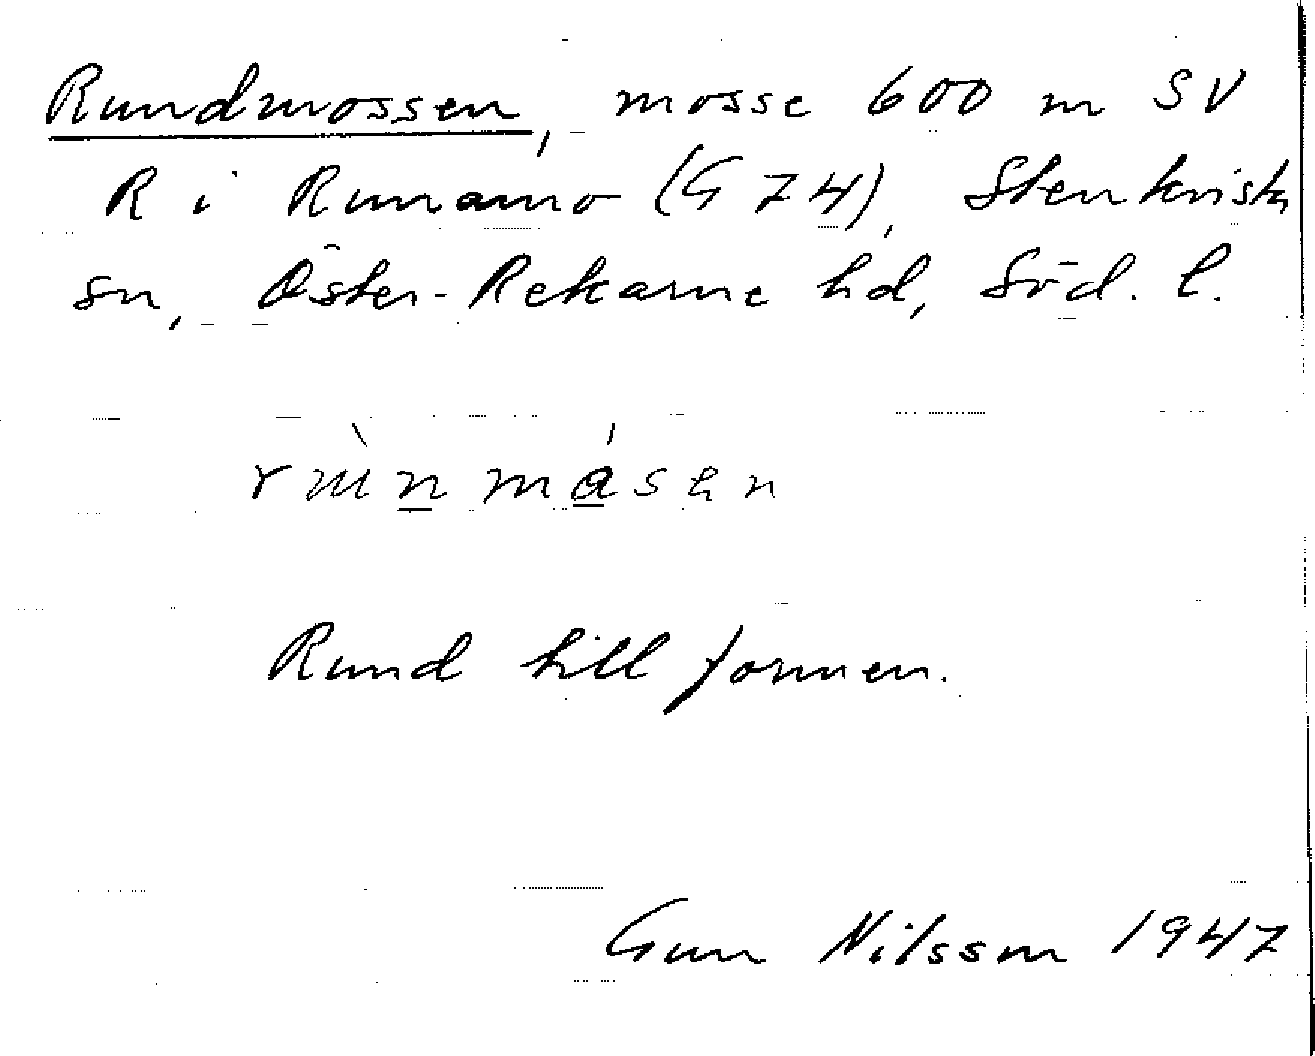 Rundmossen, mosse 600 m SV
R i Runamo (G 74), Stenkvista
sn, Öster-Rekarne hd, Söd. l.
Rund till formen.
Gun Nilsson 1947